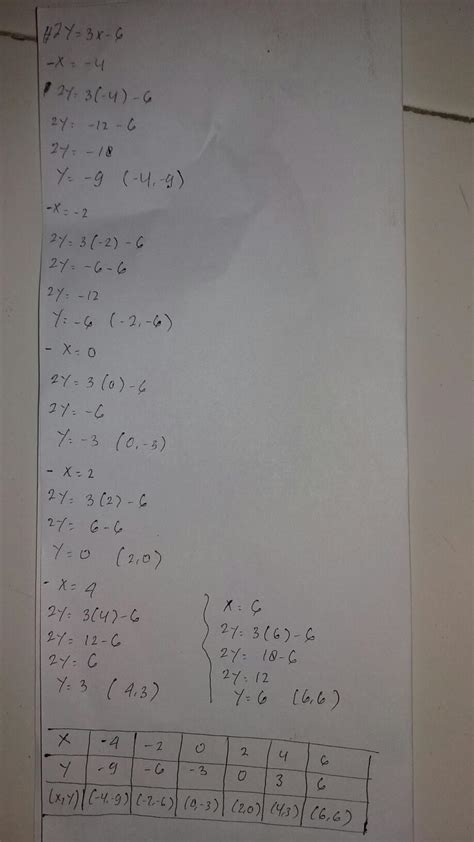 2Y = 3x - 6
- x = -4
2Y = 3(-4) - 6
2Y = -12 - 6
2Y = -18
Y = -9 (-4, -9)
- x = -2
2Y = 3(-2) - 6
2Y = -6 - 6
2Y = -12
Y = -6 (-2, -6)
- x = 0
2Y = 3(0) - 6
2Y = -6
Y = -3 (0, -3)
- x = 2
2Y = 3(2) - 6
2Y = 6 - 6
Y = 0 (2,0)
- x = 4
2Y = 3(4) - 6
2Y = 12 - 6
2Y = 6
Y = 3 (4,3)
x = 6
2Y = 3(6) - 6
2Y = 18 - 6
2Y = 12
Y = 6 (6,6)
X -4 -2 0 2 4 6
Y -9 -6 -3 0 3 6
(x,Y) (-4,-9) (-2,-6) (0,-3) (2,0) (4,3) (6,6)